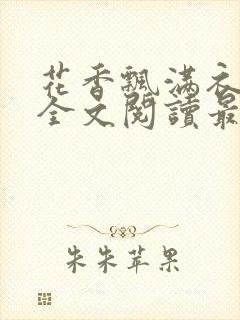 花香飄滿衣
全文閱讀最
朱朱苹果